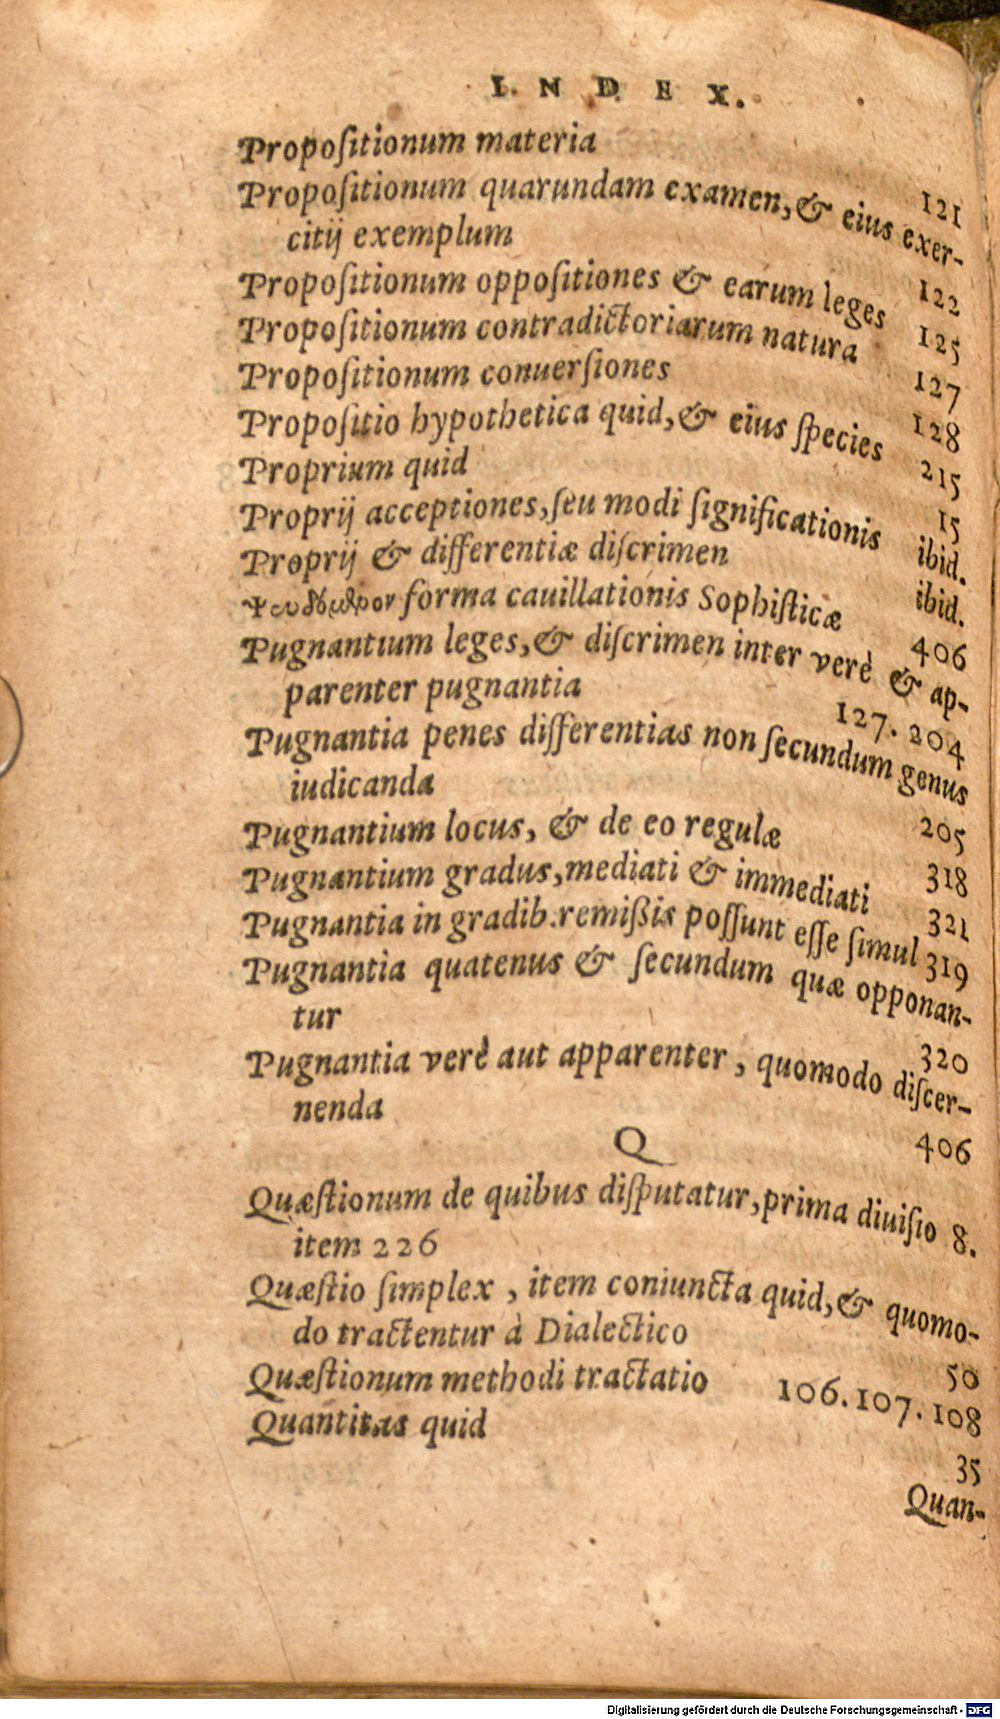 INDEX.
Propositionum materia 121
Propositionum quarundam examen, & eius exer-
citij exemplum 122
Propositionum oppositiones & earum leges 125
Propositionum contradictoriarum natura 127
Propositionum conuersiones 128
Propositio hypothetica quid, & eius species 215
Proprium quid 15
Proprij acceptiones, seu modi significationis ibid.
Proprij & differentiæ discrimen ibid.
forma cauillationis Sophisticæ 406
Pugnantium leges, & discrimen inter verè & ap-
parenter pugnantia 127. 204
Pugnantia penes differentias non secundum genus
iudicanda 205
Pugnantium locus, & de eo regulæ 318
Pugnantium gradus, mediati & immediati 321
Pugnantia in gradib. remißis possunt esse simul 319
Pugnantia quatenus & secundum quæ opponan-
tur 320
Pugnantia verè aut apparenter, quomodo discer-
nenda 406
Q
Quæstionum de quibus disputatur, prima diuisio 8.
item 226
Quæstio simplex, item coniuncta quid, & quomo-
do tractentur à Dialectico 50
Quæstionum methodi tractatio 106. 107. 108
Quantitas quid 35
Quan-
Digitalisierung gefördert durch die Deutsche Forschungsgemeinschaft - DFG